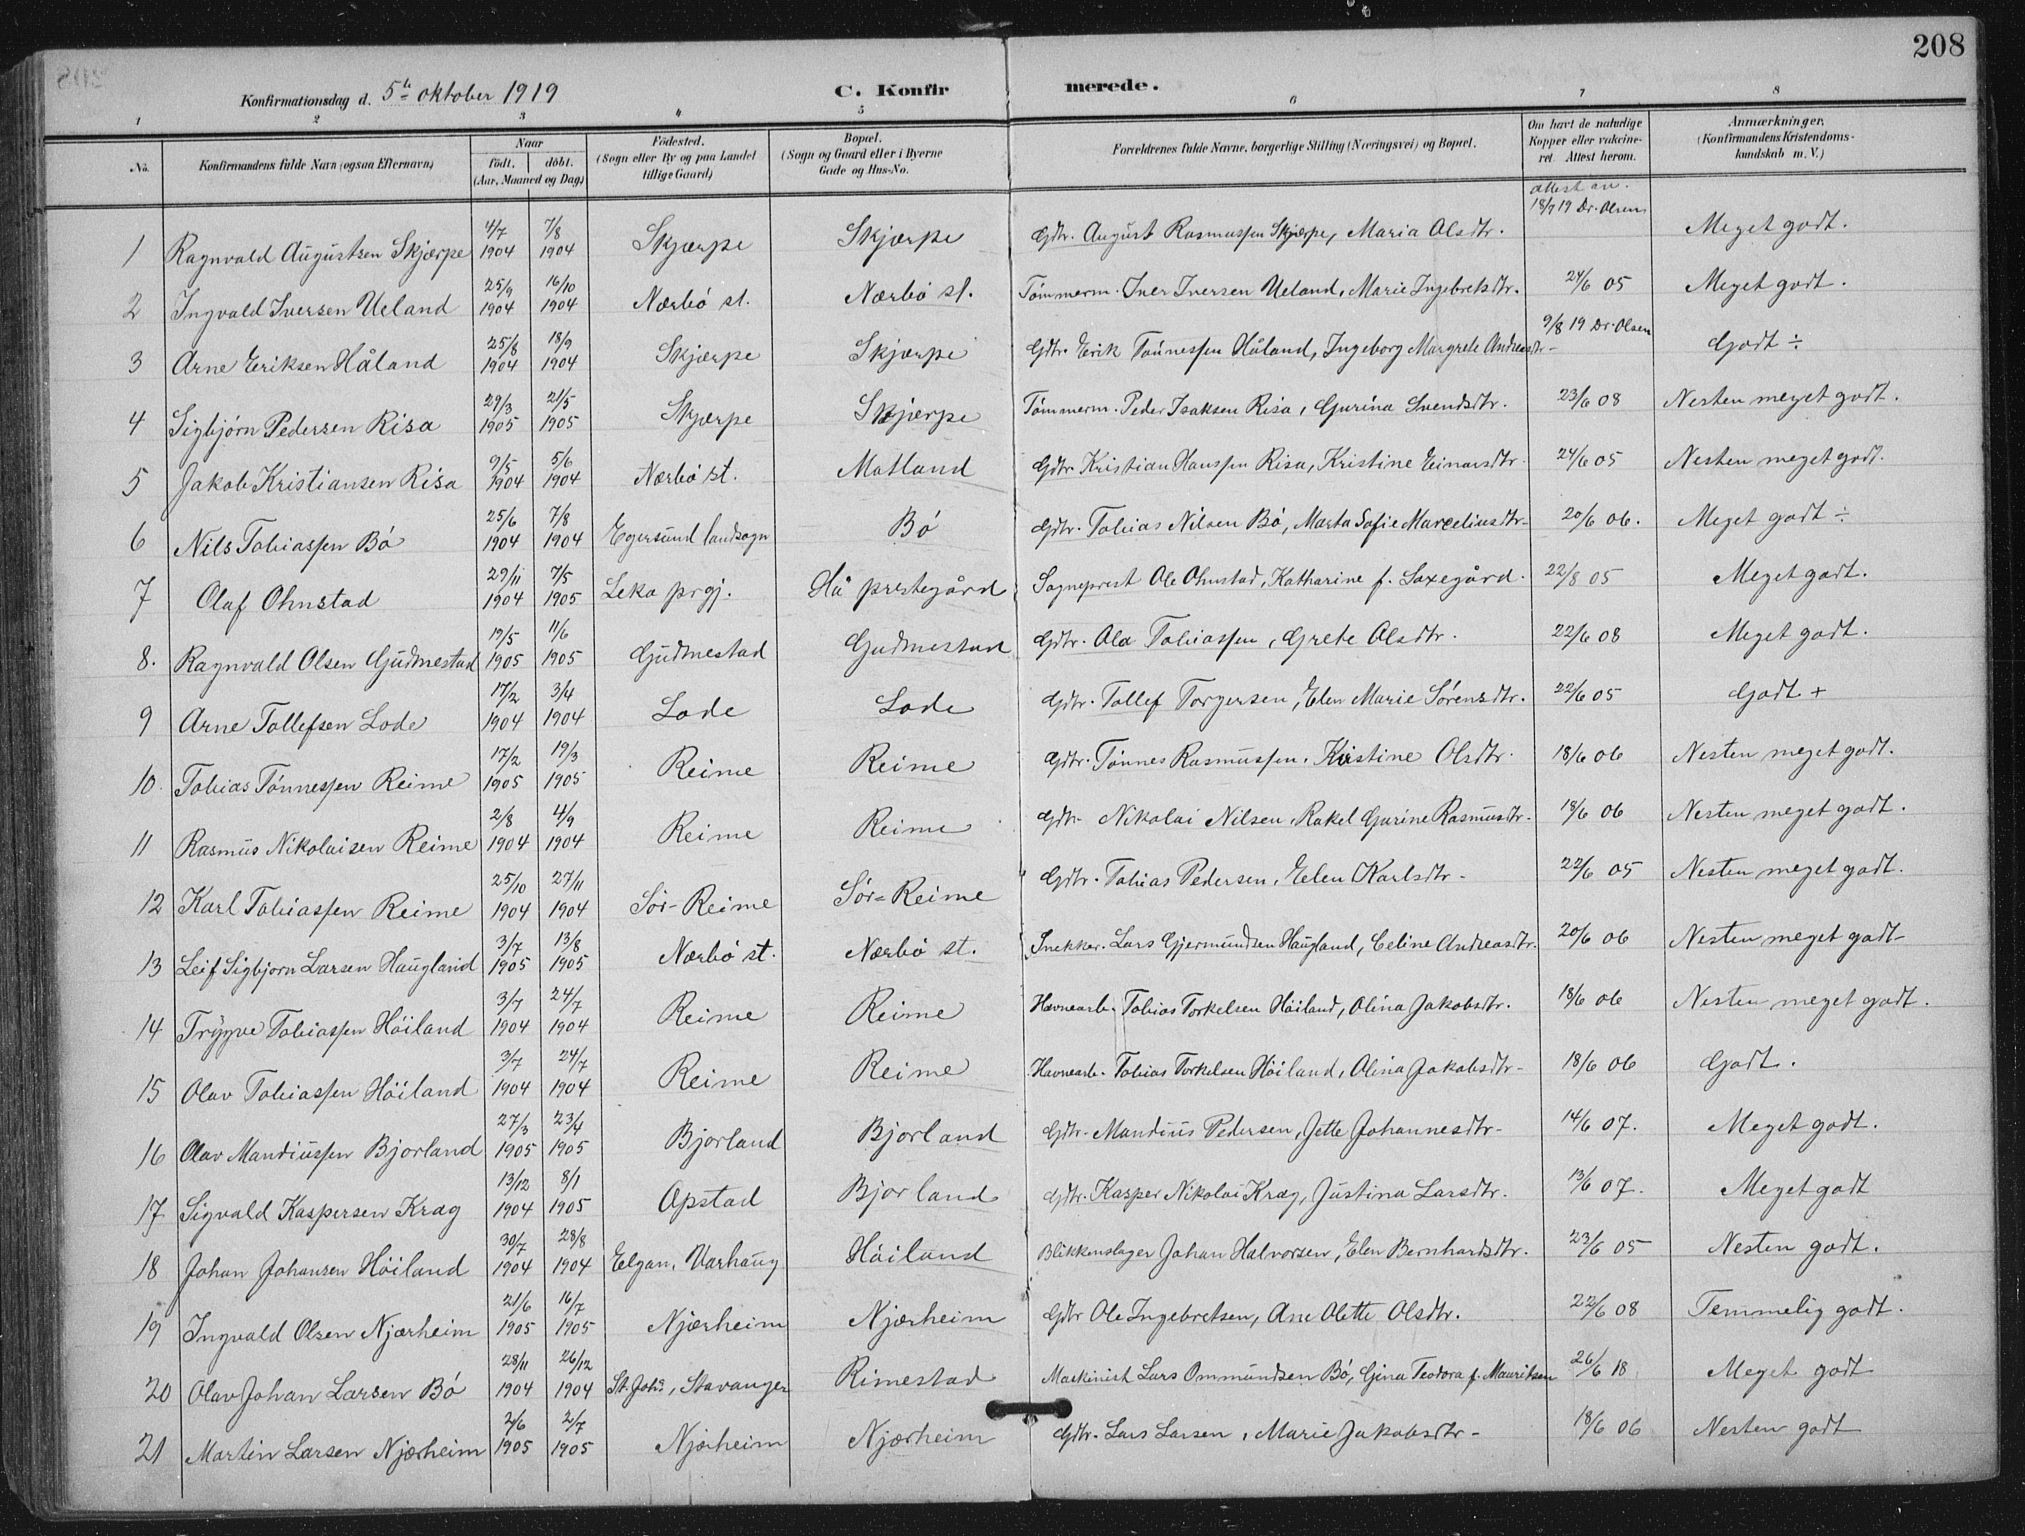 208
Konfirmationsdag d. 5te oktober 1919 C. Konfirmerede.
1 2 3 4 5 6 7 8
No. Konfirmandens fulde Navn (ogsaa Efternavn) Naar født. døbt. (Aar, Maaned og Dag) Fødested. (Sogn eller By og paa Landet tillige Gaard) Bopæl. (Sogn og Gaard eller i Byerne Gade og Hus-No. Forældrenes fulde Navne, borgerlige Stilling (Næringsvei) og Bopæl. Om havt de naturlige Kopper eller vakcineret. Attest herom. Anmærkninger, (Konfirmandens Kristendomskundskab m. V.)
1 Ragnvald Augustsen Skjærpe 4/7 1904 7/8 1904 Skjærpe Skjærpe Gdbr. August Rasmussen Skjærpe, Maria Olsdtr. attest av. 18/9 19 Dr. Olsen Meget godt.
2 Ingvald Iversen Ueland 25/9 1904 16/10 1904 Nærbø st. Nærbø st. Tømmerm. Iver Iversen Ueland, Marie Ingebretsdtr. 24/6 05 Meget godt.
3 Arne Eriksen Håland 25/8 1904 18/9 1904 Skjærpe Skjærpe Gdbr. Erik Tønnessen Håland, Ingeborg Margrete Andreasdtr- 9/8 19 Dr. Olsen Godt ÷
4 Sigbjørn Pedersen Risa 29/3 1905 21/5 1905 Skjærpe Skjærpe Tømmerm. Peder Isaksen Risa, Gurina Svendsdtr. 23/6 08 Nesten meget godt.
5 Jakob Kristiansen Risa 9/5 1904 5/6 1904 Nærbø st. Motland Gdbr Kristian Hanssen Risa, Kristine Einarsdtr. 24/6 05 Nesten meget godt.
6 Nils Tobiassen Bø 25/6 1904 7/8 1904 Egersund landsogn Bø Gdbr. Tobias Nilsen Bø, Marta Sofie Marceliusdtr- 20/6 06. Meget godt ÷
7 Olaf Ohnstad 29/11 1904 7/5 1905 Leka prgj. Hå prestegård Sogneprest Ole Ohnstad, Katharine f. Saxegård. 22/8 05 Meget godt.
8. Ragnvald Olsen Gudmestad 19/5 1905 11/6 1905 Gudmestad Gudmestad Gdbr. Ola Tobiassen, Grete Olsdtr. 22/6 08 Meget godt.
9 Arne Tollefsen Lode 17/2 1904 3/4 1904 Lode Lode Gdbr. Tollef Torgersen, Elen Marie Sørensdtr. 22/6 05 Godt +
10. Tobias Tønnessen Reime 17/2 1905 19/3 1905 Reime Reime Gdbr. Tønnes Rasmussen, Kristine Olsdtr. 18/6 06 Nesten meget godt.
11 Rasmus Nikolaisen Reime 2/8 1904 4/9 1904 Reime Reime Gdbr- Nikolai Nilsen, Rakel Gurine Rasmusdtr. 18/6 06 Nesten meget godt.
12 Karl Tobiassen Reime 25/10 1904 27/11 1904 Sør-Reime Sør=Reime Gdbr. Tobias Pedersen, Elen Karlsdtr- 22/6 05 Nesten meget godt.
13 Leif Sigbjorn Larsen Haugland 3/7 1905 13/8 1905 Nærbø st. Nærbø st. Snekker. Lars Gjermundsen Haugland, Celine Andreasdtr. 20/6 06 Nesten meget godt-
14 Tryggve Tobiassen Höiland 3/7 1904 24/7 1904 Reime Reime Havnearb. Tobias Torkelsen Höiland, Olina Jakobsdtr. 18/6 06 Nesten meget godt.
15 Olav Tobiassen Höiland 3/7 1904 24/7 1904 Reime Reime Havnearb. Tobias Torkelsen Höiland, Olina Jakobsdtr- 18/6 06 Godt.
16 Olav Mandiussen Bjorland 27/3 1905 23/4 1905 Bjorland Bjorland Gdbr- Mandius Pedersen, Jette Johannesdtr- 14/6 07. Meget godt.
17 Sigvald Kaspersen Krag 13/12 1904 8/1 1905 Opstad Bjorland Gdbr. Kasper Nikolai Krag, Justina Larsdtr. 13/6 07. Meget godt
18 Johan Johansen Höiland 30/7 1904 28/8 1904 Elgan, Varhaug Höiland Blikkenslager Johan Halvorsen, Elen Bernhardsdtr. 23/6 05 Nesten godt.
19 Ingvald Olsen Njærheim 21/6 1905 16/7 1905 Njærheim Njærheim Gdbr Ole Ingebretsen, Ane Olette Olsdtr. 22/6 08 Temmelig godt.
20 Olav Johan Larsen Bø 28/11 1904 26/12 1904 St. Johs, Stavanger Rimestad Maskinist Lars Ommundsen Bø, Gina Teodora f. Mauritsen 26/6 18 Meget godt
21 Martin Larsen Njærheim 2/6 1905 2/7 1905 Njærheim Njærheim Gdbr. Lars Larsen, Marie Jakobsdtr- 18/6 06 Nesten godt